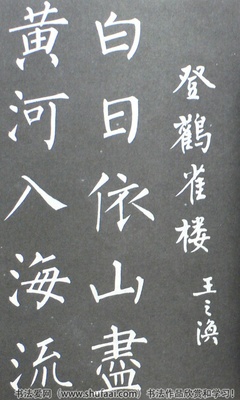 登鸛雀楼
王之渙
白日依山盡
黄河入海流
书法爱网（www.shufaai.com）书法作品欣赏和学习！